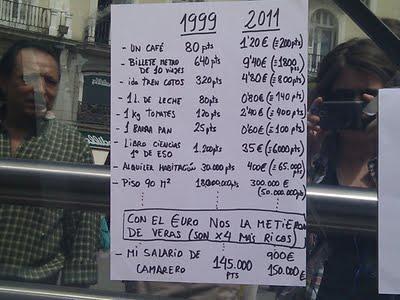 1999 2011
- UN CAFÉ 80 pts 1'20 € (=200 pts)
- BILLETE METRO DE 10 VIAJES 640 pts 9'40 € (=1800 pts)
- ida TREN COTOS 320 pts 4'80 € (=800 pts)
- 1 L. DE LECHE 80 pts 0'80 € (=140 pts)
- 1 Kg TOMATES 120 pts 2'40 € (=400 pts)
- 1 BARRA PAN 25 pts 0'60 € (=100 pts)
- LIBRO CIENCIAS 1º DE ESO 1.200 pts 35 € (=6000 pts)
- ALQUILER HABITACIÓN 30.000 pts 400 € (=65.000 pts)
- PISO 90 M² 300.000 € (50.000.000 pts)
CON EL €URO NOS LA METIERON
DE VERAS (SON x4 MÁS RICOS)
- MI SALARIO DE CAMARERO 145.000 PTS 900 € 150.000